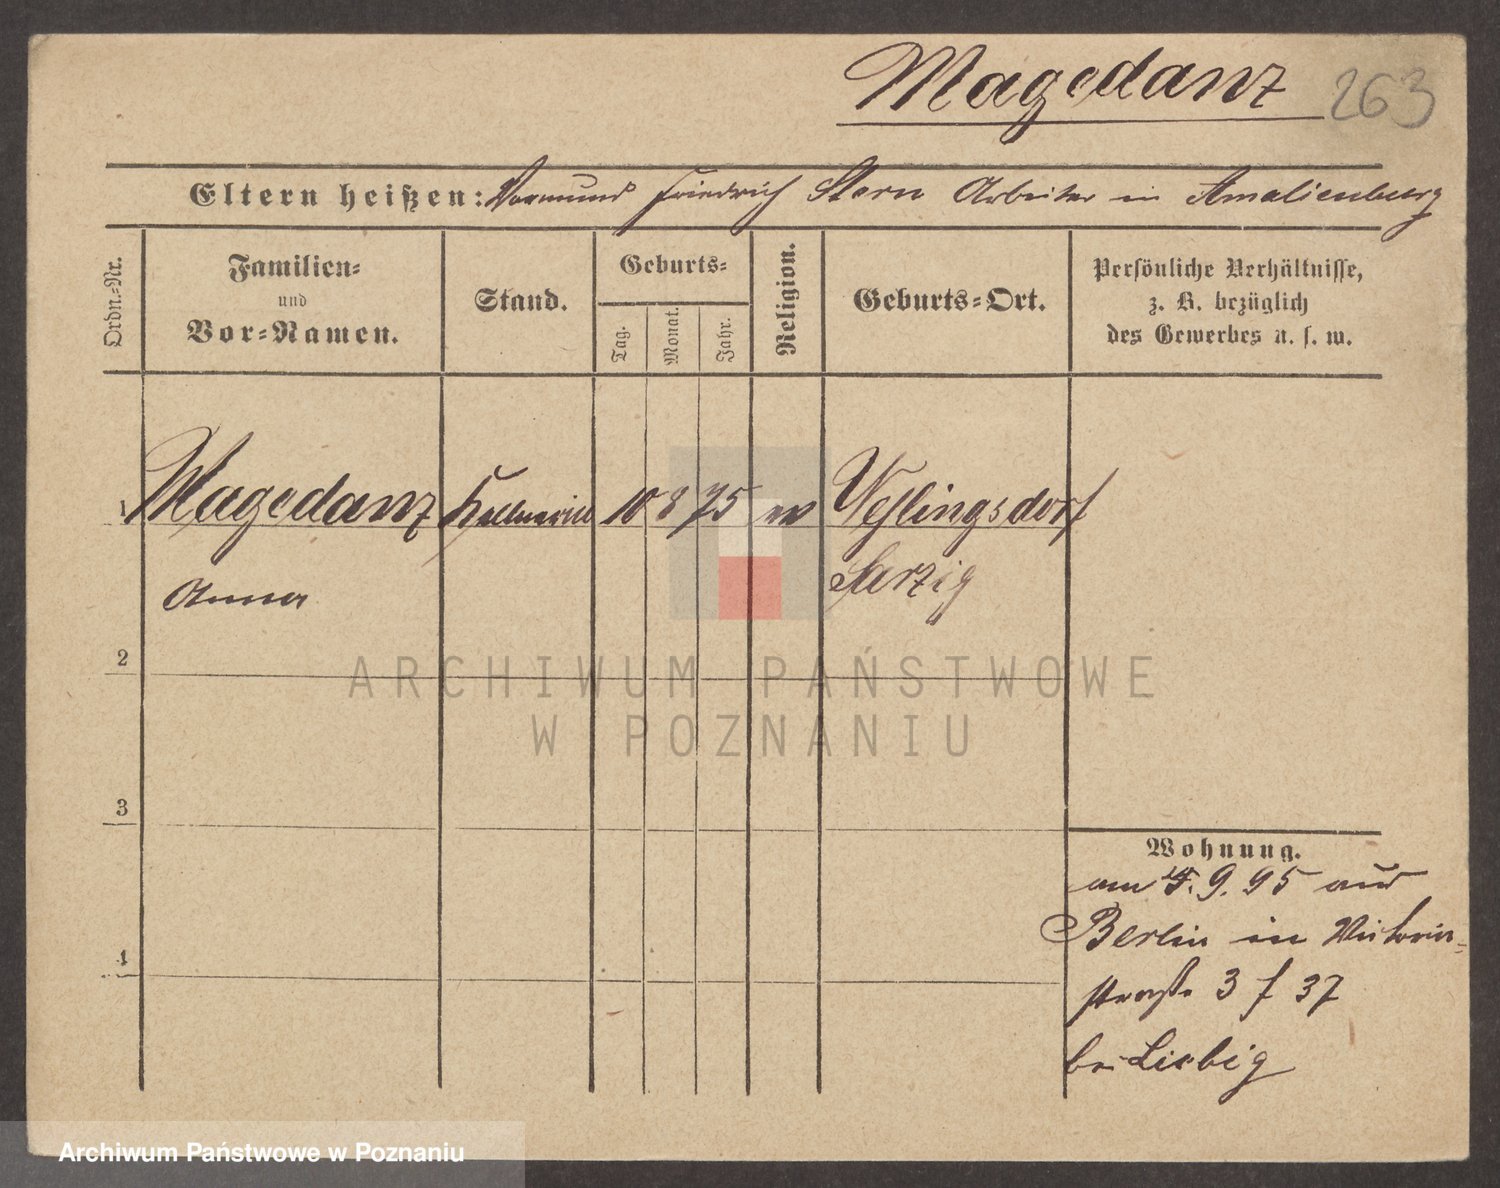 Magedanz 263
Eltern heißen: Vormund Friedrich Stern Arbeiter in Amalienburg
Ordn.-Nr.
Familien-
und
Vor-Namen.
Stand.
Geburts-
Tag.
Monat.
Jahr.
Religion.
Geburts-Ort.
Persönliche Verhältnisse,
z. B. bezüglich
des Gewerbes u. s. w.
1 Magedanz Kellnerin 10 8 75 ev
Anna
2
3
4
Wohnung.
am 9. 95 aus
Berlin in Victoria-
straße 3 f 37
bei Liebig
ARCHIWUM PAŃSTWOWE
W POZNANIU
Archiwum Państwowe w Poznaniu